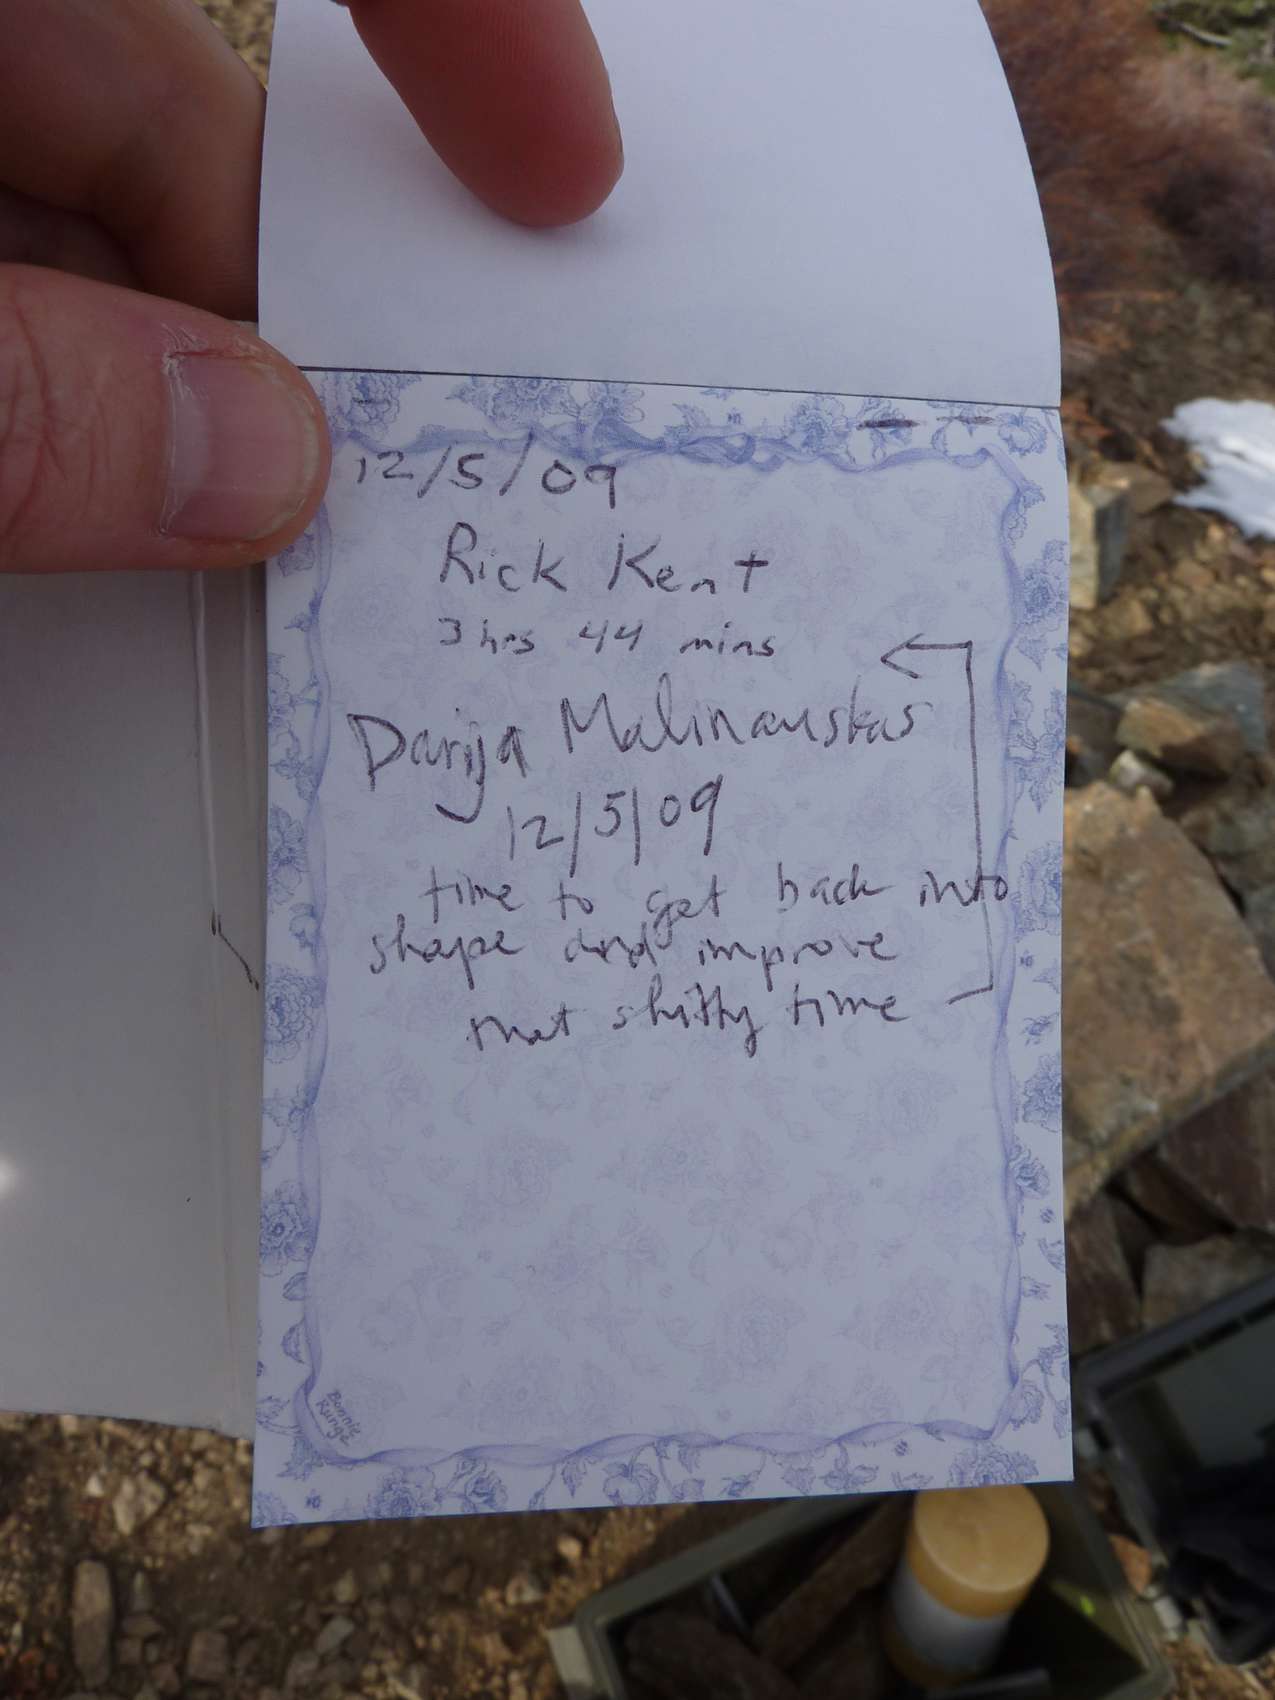 12/5/09
Rick Kent
3 hrs 44 mins
Darija Malinauskas
12/5/09
time to get back into
shape and improve
that shitty time
Bonnie
Runge